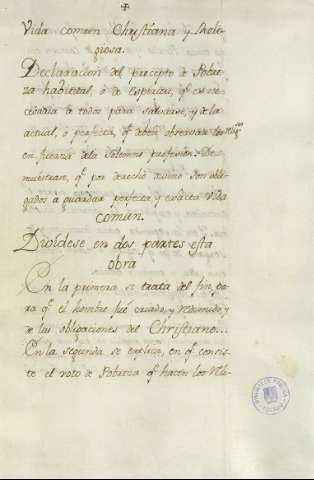 Vida comun Christiana y Reli-
giosa.
Declaracion del precepto de Pobre-
za habitual, ó de Espiritu, qe. es ne-
cesaria a todos para salvarse, y de la
actual, ó perfecta, qe. deben observar los Religsos.
en fuerza de la Solemne profesion: De-
muestrase, qe. por derecho divino son obli-
gados a guardar perfecta, y exâcta Vida
comun.
Dividese en dos partes esta
obra
En la primera se trata del fin, pa-
ra qe. el hombre fué criado, y redimido; y
de las obligaciones del Christiano...
En la segunda se explica, en qe. consis-
te el voto de Pobreza qe. hacen los Reli-